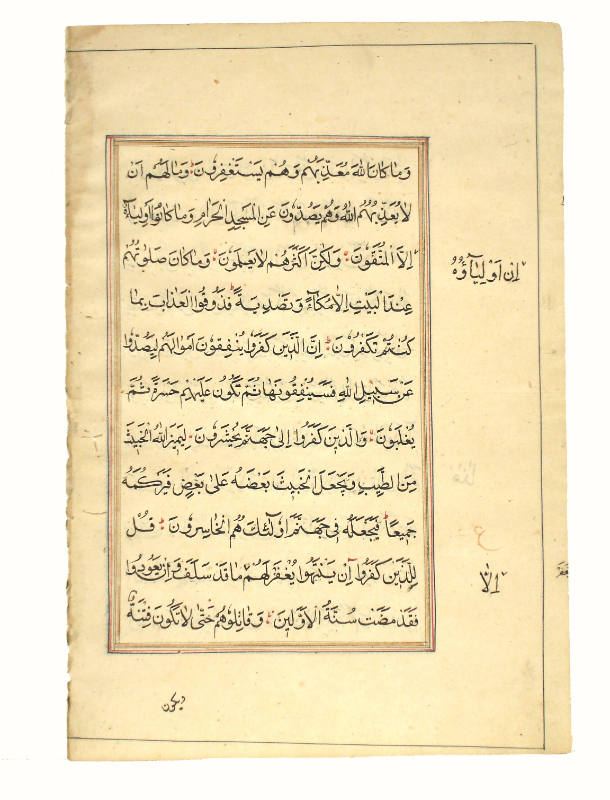 وَمَا كَانَ اللهُ مُعَذِّبَهُمْ وَهُمْ يَسْتَغْفِرُونَ وَمَا لَهُمْ اَنْ
لَا يُعَذِّبَهُمُ اللهُ وَهُمْ يَصُدُّونَ عَنِ الْمَسْجِدِ الْحَرَامِ وَمَا كَانُوا اَوْلِيَاءَهُ
اِلَّا الْمُتَّقُونَ وَلٰكِنَّ اَكْثَرَهُمْ لَا يَعْلَمُونَ وَمَا كَانَ صَلَاتُهُمْ
عِنْدَ الْبَيْتِ اِلَّا مُكَاءً وَتَصْدِيَةً فَذُوقُوا الْعَذَابَ بِمَا
كُنْتُمْ تَكْفُرُونَ اِنَّ الَّذِينَ كَفَرُوا يُنْفِقُونَ اَمْوَالَهُمْ لِيَصُدُّوا
عَنْ سَبِيلِ اللهِ فَسَيُنْفِقُونَهَا ثُمَّ تَكُونُ عَلَيْهِمْ حَسْرَةً ثُمَّ
يُغْلَبُونَ وَالَّذِينَ كَفَرُوا اِلٰى جَهَنَّمَ يُحْشَرُونَ لِيَمِيزَ اللهُ الْخَبِيثَ
مِنَ الطَّيِّبِ وَيَجْعَلَ الْخَبِيثَ بَعْضَهُ عَلٰى بَعْضٍ فَيَرْكُمَهُ
جَمِيعًا فَيَجْعَلَهُ فِي جَهَنَّمَ اُولٰئِكَ هُمُ الْخَاسِرُونَ قُلْ
لِلَّذِينَ كَفَرُوا اِنْ يَنْتَهُوا يُغْفَرْ لَهُمْ مَا قَدْ سَلَفَ وَاِنْ يَعُودُوا
فَقَدْ مَضَتْ سُنَّةُ الْاَوَّلِينَ وَقَاتِلُوهُمْ حَتّٰى لَا تَكُونَ فِتْنَةٌ
اِنْ اَوْلِيَاؤُهُ
اِلَّا
ويكون